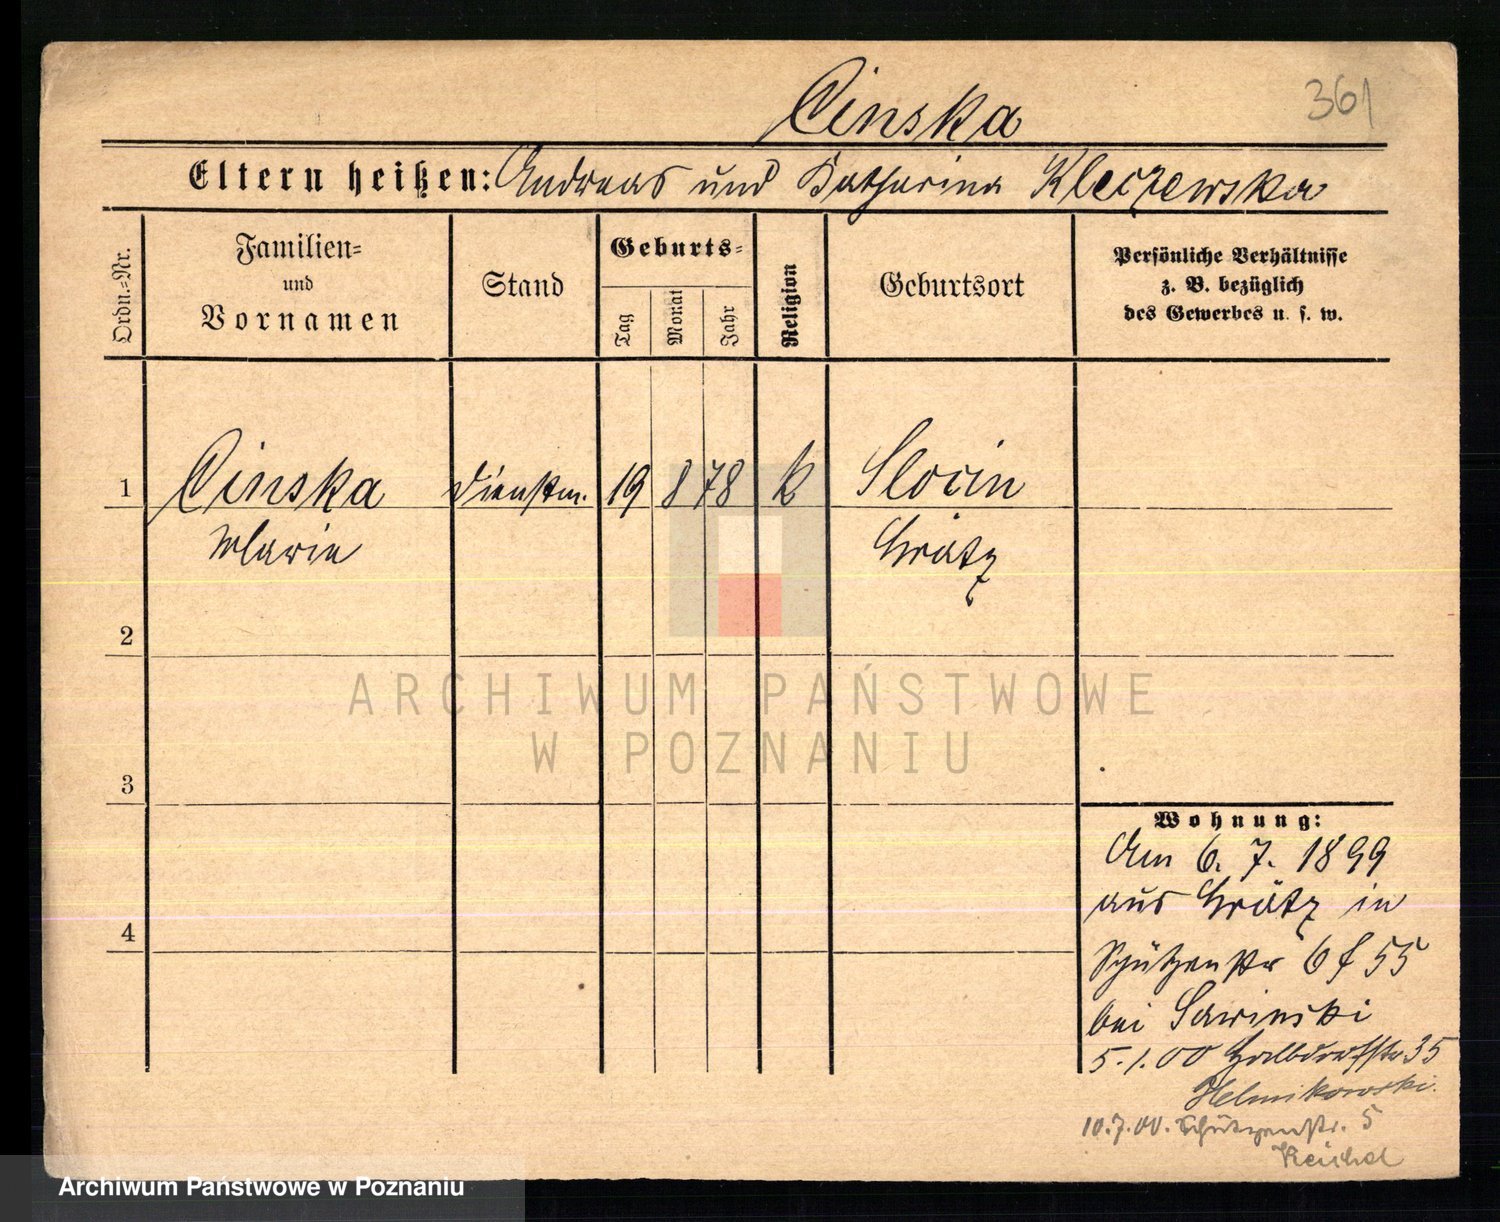 361
Cinska
Eltern heißen: Andreas und Katharina Kleczewska
Ordn.=Nr.
Familien=
und
Vornamen
Stand
Geburts=
Tag
Monat
Jahr
Religion
Geburtsort
Persönliche Verhältnisse
z. B. bezüglich
des Gewerbes u. s. w.
1 Cinska Dienstm. 19 8 78 k Slocin
Marie Grätz
2
ARCHIWUM PAŃSTWOWE
W POZNANIU
3
Wohnung:
Am 6. 7. 1899
aus Grätz in
4
Schützenstr 6 f 55
bei Sawinski
5.1.00 Halbdorfstr 35
Helmikowski.
10.7.00. Schützenstr. 5
Reichel
Archiwum Państwowe w Poznaniu